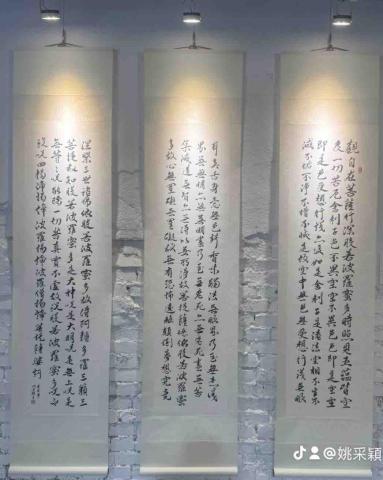 觀自在菩薩行深般若波羅蜜多時照見五蘊皆空
度一切苦厄舍利子色不異空空不異色色即是空空
即是色受想行識亦復如是舍利子是諸法空相不生不
滅不垢不淨不增不減是故空中無色無受想行識無眼
耳鼻舌身意無色聲香味觸法無眼界乃至無意識
界無無明亦無無明盡乃至無老死亦無老死盡無苦
集滅道無智亦無得以無所得故菩提薩埵依般若波羅蜜
多故心無罣礙無罣礙故無有恐怖遠離顛倒夢想究竟
涅槃三世諸佛依般若波羅蜜多故得阿耨多羅三藐三
菩提故知般若波羅蜜多是大神咒是大明咒是無上咒是
無等等咒能除一切苦真實不虛故說般若波羅蜜多咒即
說咒曰揭諦揭諦波羅揭諦波羅僧揭諦菩提薩婆訶
姚采穎